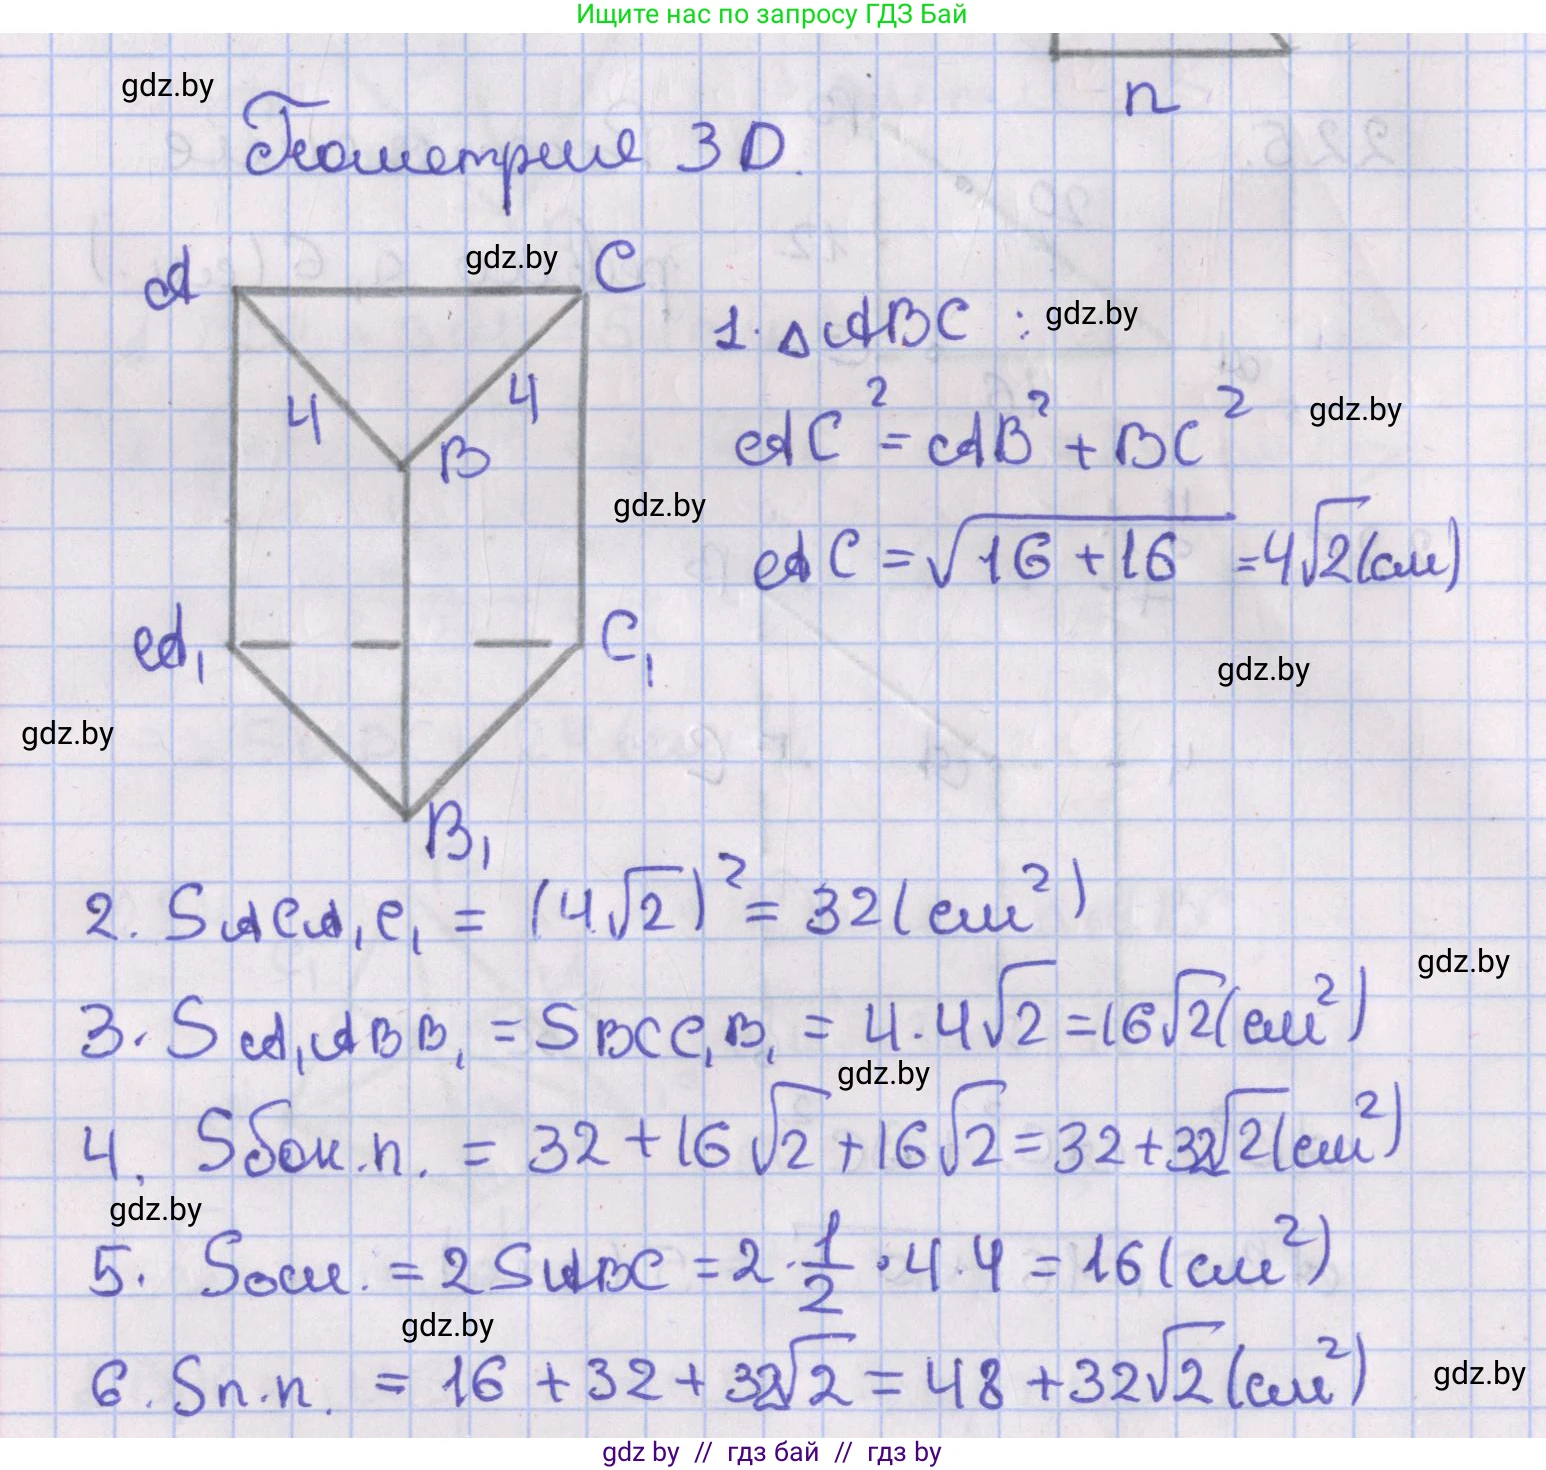 Ищите нас по запросу ГДЗ Бай
n
gdz.by
Геометрия 3D.
A
gdz.by
C
4
4
B
1. △ABC :
gdz.by
AC² = AB² + BC²
gdz.by
gdz.by
AC = √16 + 16 = 4√2 (см)
A₁
C₁
gdz.by
gdz.by
B₁
2. SACA₁C₁ = (4√2)² = 32 (см²)
gdz.by
3. SA₁ABB₁ = SBCC₁B₁ = 4 · 4√2 = 16√2 (см²)
gdz.by
4. Sбок.п. = 32 + 16√2 + 16√2 = 32 + 32√2 (см²)
gdz.by
5. Sосн. = 2SABC = 2 · 1/2 · 4 · 4 = 16 (см²)
gdz.by
6. Sп.п. = 16 + 32 + 32√2 = 48 + 32√2 (см²)
gdz.by
gdz by // гдз бай // гдз by